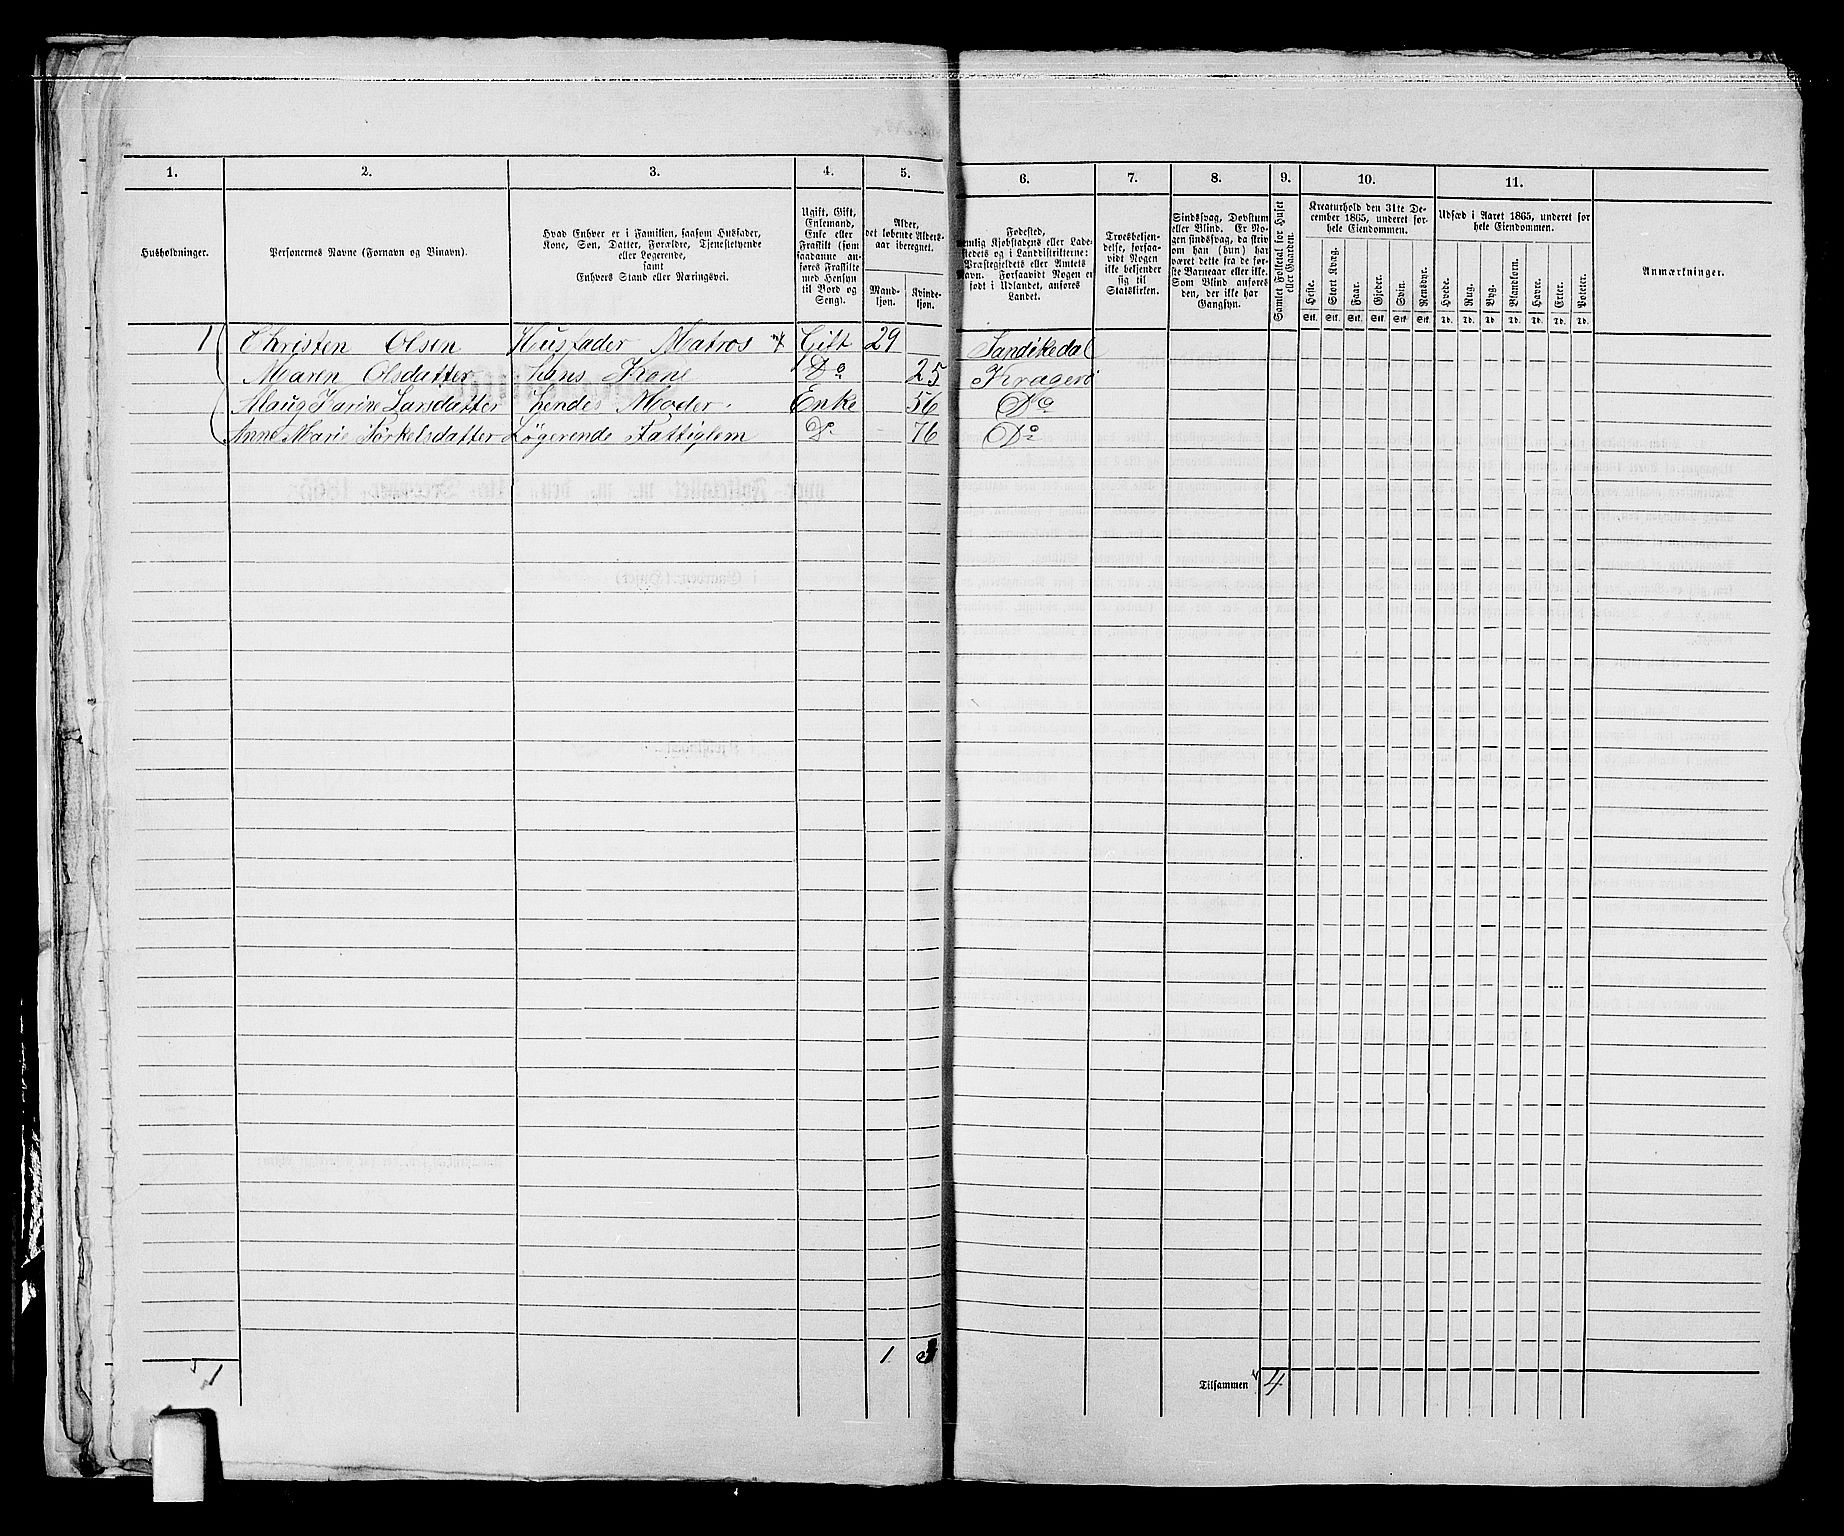 1. 2. 3. 4. 5. 6. 7. 8. 9. 10. 11.
Husholdninger.
Personernes Navne (Fornavn og Binavn).
Hvad Enhver er i Familien, saasom Husfader,
Kone, Søn, Datter, Forældre, Tjenestetyende
eller Logerende,
samt
Enhvers Stand eller Næringsvei.
Ugift, Gift,
Enkemand,
Enke eller
Fraskilt (som
saadanne an-
føres Fraskilte
med Hensyn
til Bord og
Seng).
Alder,
det løbende Alders-
aar iberegnet.
Mand-
kjøn.
Kvinde-
kjøn.
Fødested,
nemlig Kjøbstadens eller Lade-
stedets og i Landdistrikterne:
Præstegjeldets eller Amtets
Navn. Forsaavidt Nogen er
født i Udlandet, anføres
Landet.
Troesbekjen-
delse, forsaa-
vidt Nogen
ikke bekjender
sig til
Statskirken.
Sindssvag, Døvstum
eller Blind. Er No-
gen sindssvag, da skriv
om han (hun) har
været dette fra de før-
ste Barneaar eller ikke.
Som Blind anføres
den, der ikke har
Gangsyn.
Samlet Folketal for Huset
eller Gaarden.
Kreaturhold den 31te De-
cember 1865, underet for-
hele Eiendommen.
Heste.
Stort Kvæg.
Faar.
Gjeder.
Svin.
Rensdyr.
Stk. Stk. Stk. Stk. Stk. Stk.
Udsæd i Aaret 1865, underet for
hele Eiendommen.
Hvede.
Rug.
Byg.
Blandkorn.
Havre.
Erter.
Poteter.
Td. Td. Td. Td. Td. Td. Td.
Anmærkninger.
1 Christen Olsen Husfader Matros Gift 29 Sandikedal
Maren Olsdatter hans Kone Do 25 Kragerö
Karine Larsdatter hendes Moder Enke 56 Do
Anne Marie Törkelsdatter Lögerende Fattiglem Do 76 Do
1 1 3
Tilsammen 4